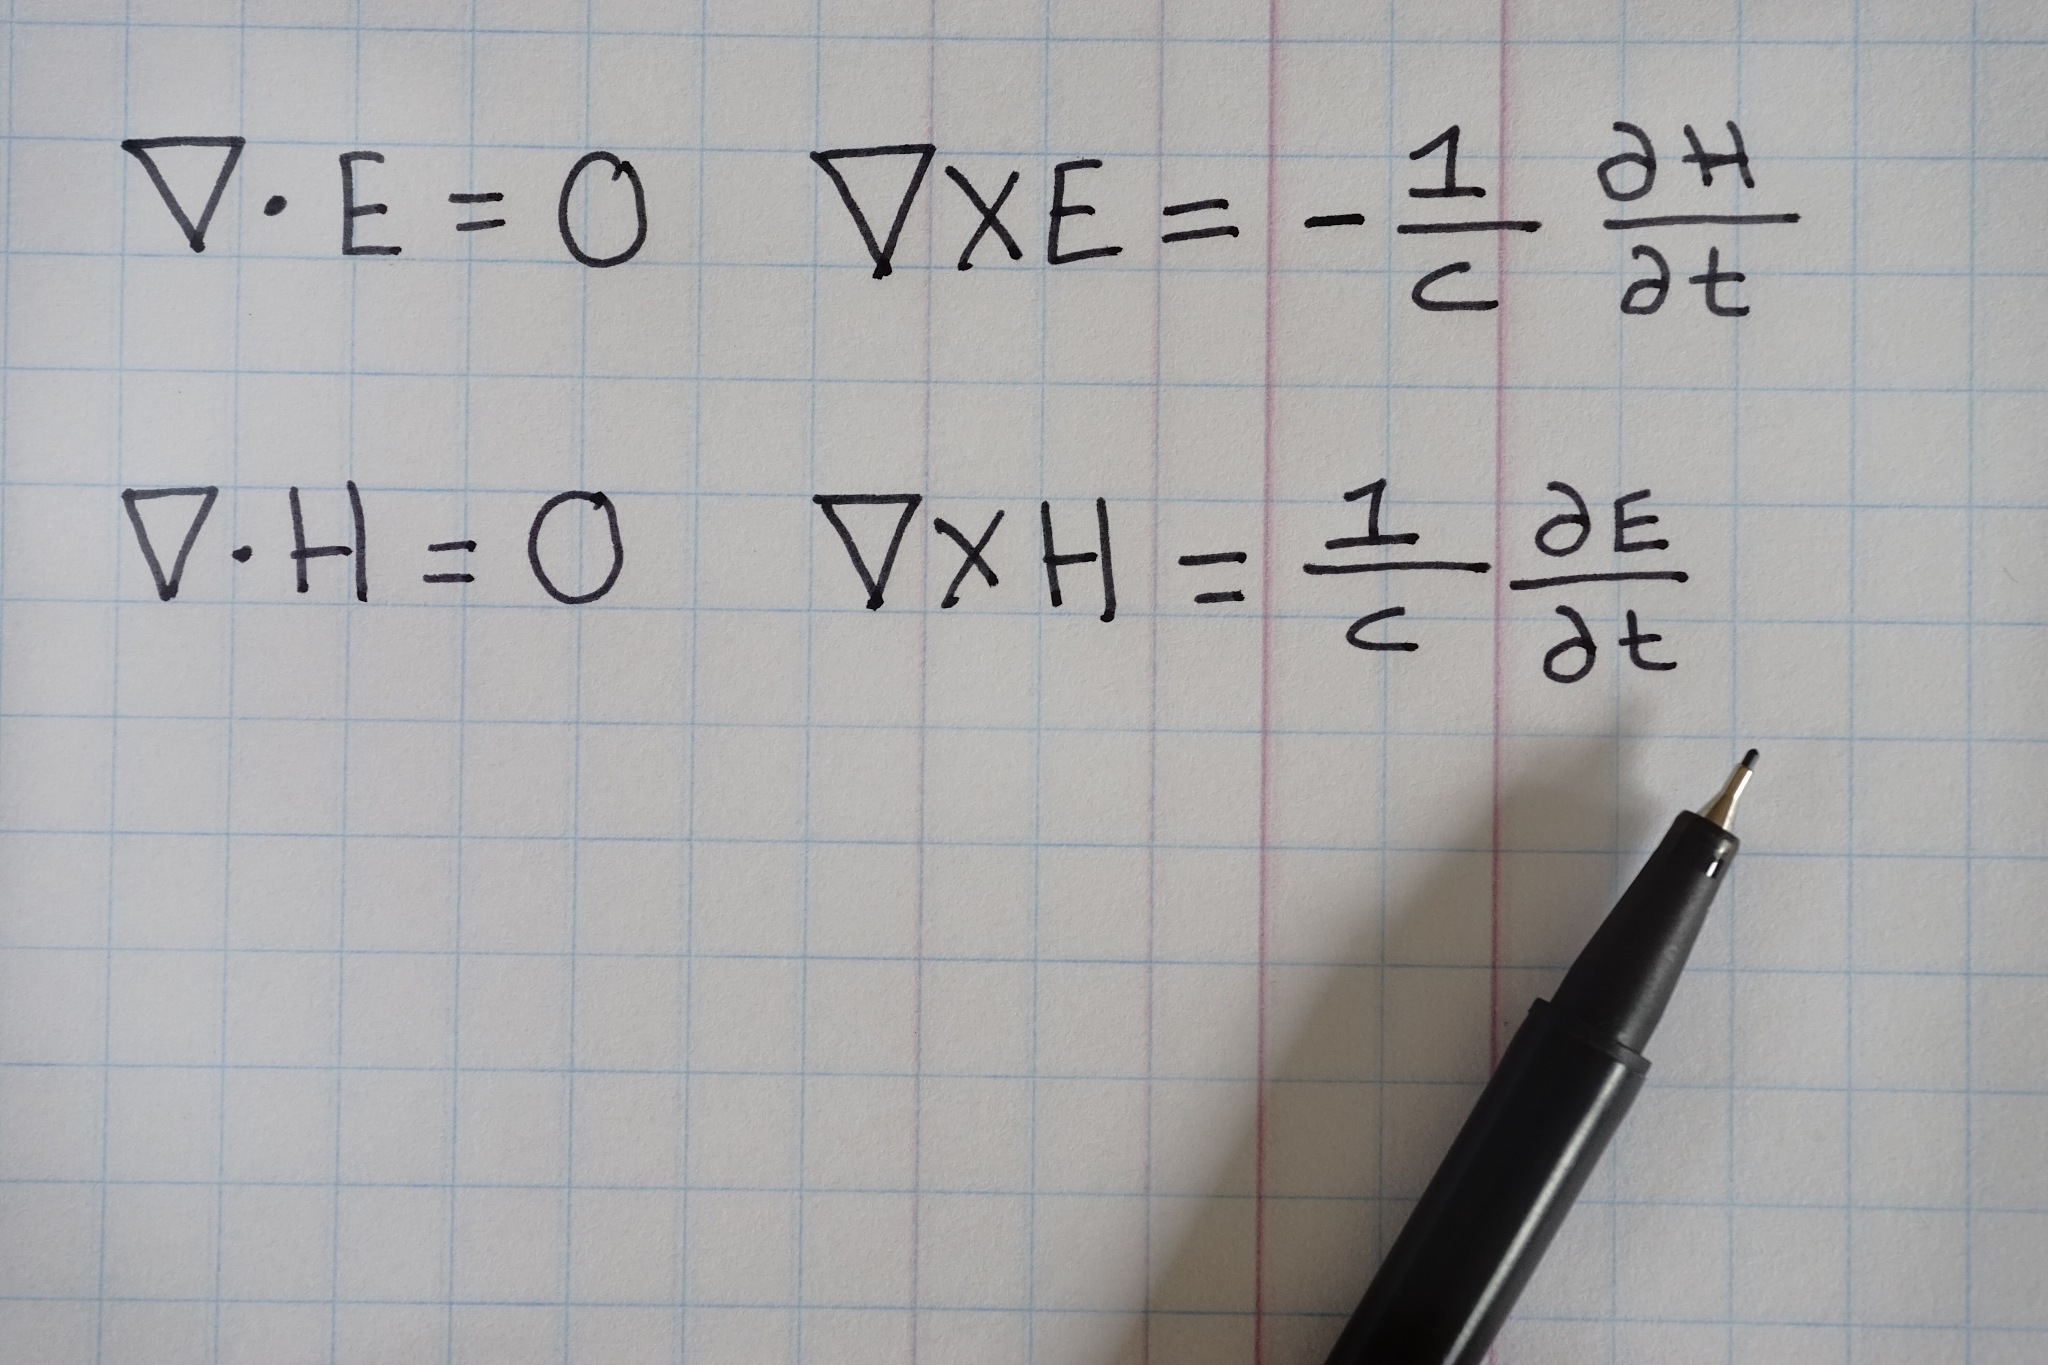 ∇·E=0 ∇×E=-1/c ∂H/∂t
∇·H=0 ∇×H=1/c ∂E/∂t